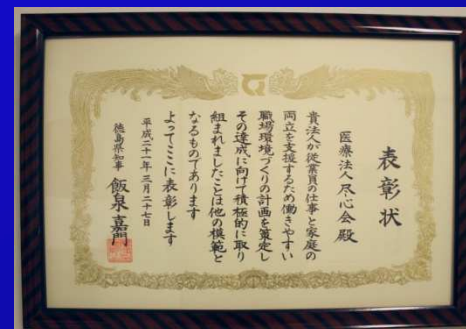 表彰状
医療法人尽心会殿
貴法人が従業員の仕事と家庭の
両立を支援するため働きやすい
職場環境づくりの計画を策定し
その達成に向けて積極的に取り
組まれましたことは他の模範と
なるものであります
よってここに表彰します
平成二十一年三月二十七日
徳島県知事 飯泉嘉門